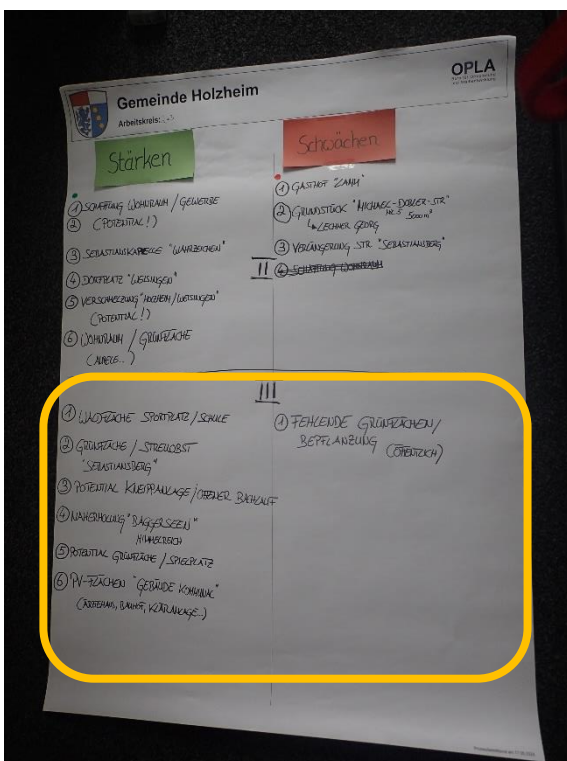 Gemeinde Holzheim
Arbeitskreis:
OPLA
Stärken
Schwächen
① SCHAFFUNG WOHNRAUM / GEWERBE
② (POTENTIAL!)
③ SEBASTIANSKAPELLE "WAHRZEICHEN"
④ DORFPLATZ "WEISINGEN"
⑤ VERSCHMELZUNG "HOLZHEIM / WEISINGEN"
(POTENTIAL!)
⑥ WOHNRAUM / GRÜNFLÄCHE
① GASTHOF "LAMM"
② GRUNDSTÜCK "MICHAEL-DOBLER-STR"
NR. 5 5000 m²
LECHNER GEORG
③ VERLÄNGERUNG STR. "SEBASTIANSBERG"
④ SCHAFFUNG WOHNRAUM
II
III
① WALDFLÄCHE SPORTPLATZ / SCHULE
② GRÜNFLÄCHE / STREUOBST
"SEBASTIANSBERG"
③ POTENTIAL KNEIPPANLAGE / OFFENER BACHLAUF
④ NAHERHOLUNG "BAGGERSEEN"
HIMMELREICH
⑤ POTENTIAL GRÜNFLÄCHE / SPIELPLATZ
⑥ PV-FLÄCHEN "GEBÄUDE KOMMUNAL"
(ÄRZTEHAUS, BAUHOF, KLÄRANLAGE..)
① FEHLENDE GRÜNFLÄCHEN /
BEPFLANZUNG (ÖFFENTLICH)